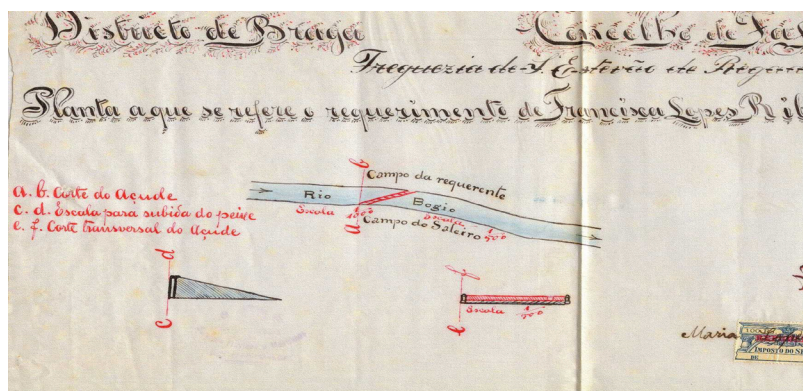 Districto de Braga
Concelho de
Freguezia de S. Estevão de
Planta a que se refere o requerimento de Francisca Lopes
a. b. Corte do Açude
c. d. Escala para subida do peixe
e. f. Corte transversal do Açude
Campo da requerente
Rio
Bogio
Escala
Escala
Campo do Saleiro
b
a
d
c
Escala
e
Maria
IMPOSTO DO
DE